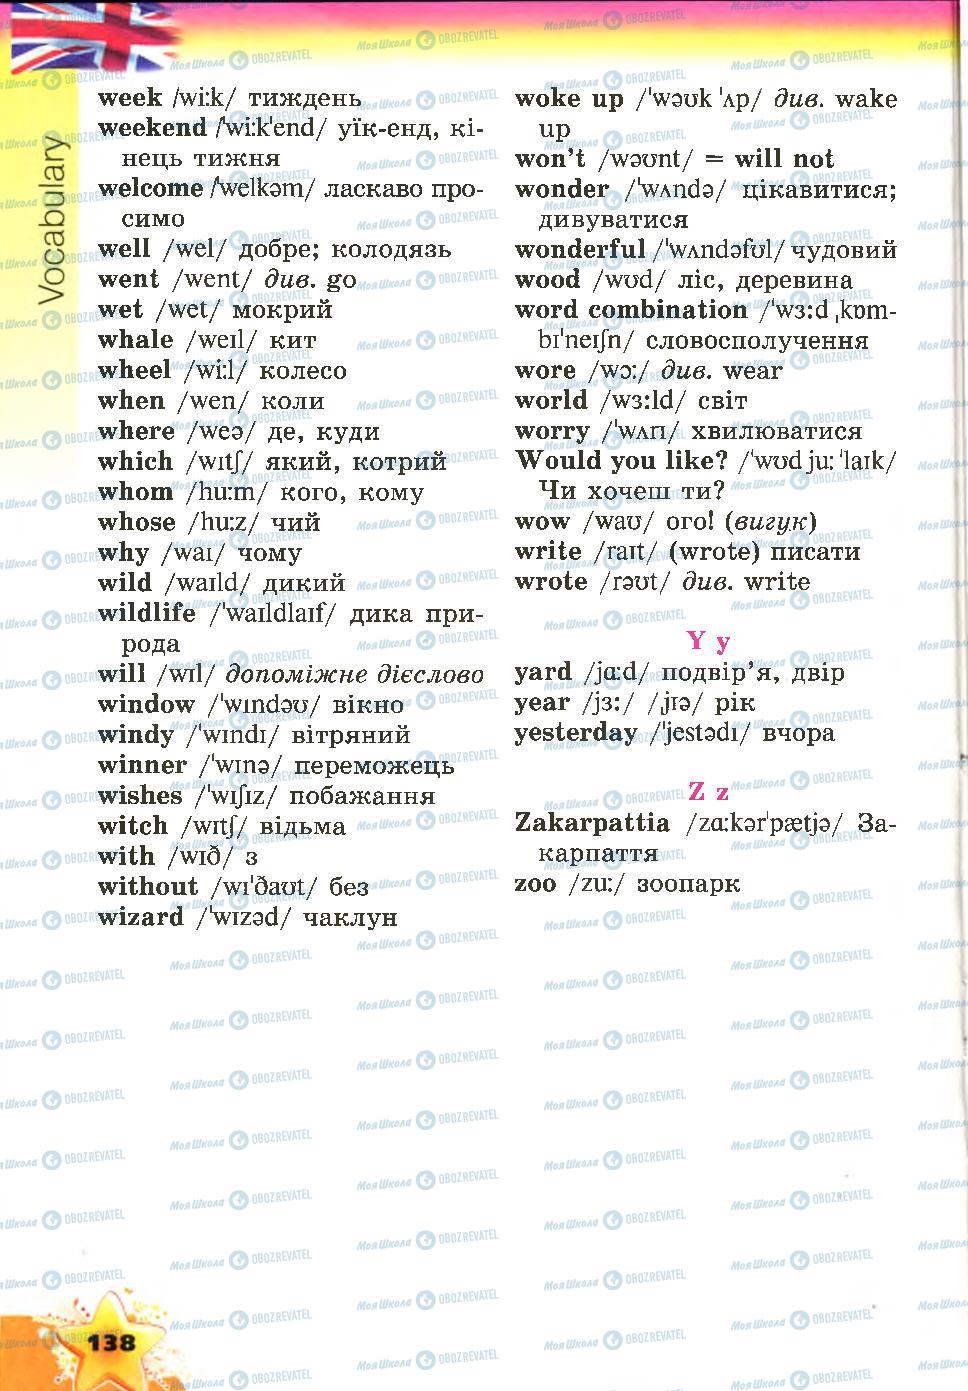 Vocabulary
week /wi:k/ тиждень
weekend /ˈwi:kˈend/ уїк-енд, кі-
нець тижня
welcome /ˈwelkəm/ ласкаво про-
симо
well /wel/ добре; колодязь
went /went/ див. go
wet /wet/ мокрий
whale /weɪl/ кит
wheel /wi:l/ колесо
when /wen/ коли
where /weə/ де, куди
which /wɪtʃ/ який, котрий
whom /hu:m/ кого, кому
whose /hu:z/ чий
why /waɪ/ чому
wild /waɪld/ дикий
wildlife /ˈwaɪldlaɪf/ дика при-
рода
will /wɪl/ допоміжне дієслово
window /ˈwɪndəʊ/ вікно
windy /ˈwɪndɪ/ вітряний
winner /ˈwɪnə/ переможець
wishes /ˈwɪʃɪz/ побажання
witch /wɪtʃ/ відьма
with /wɪð/ з
without /wɪˈðaʊt/ без
wizard /ˈwɪzəd/ чаклун
woke up /ˈwəʊk ˈʌp/ див. wake
up
won't /wəʊnt/ = will not
wonder /ˈwʌndə/ цікавитися;
дивуватися
wonderful /ˈwʌndəfʊl/ чудовий
wood /wʊd/ ліс, деревина
word combination /ˈwɜ:d ˌkɒm-
bɪˈneɪʃn/ словосполучення
wore /wɔ:/ див. wear
world /wɜ:ld/ світ
worry /ˈwʌrɪ/ хвилюватися
Would you like? /ˈwʊd ju: ˈlaɪk/
Чи хочеш ти?
wow /waʊ/ ого! (вигук)
write /raɪt/ (wrote) писати
wrote /rəʊt/ див. write
Y y
yard /jɑ:d/ подвір'я, двір
year /jɜ:/ /ˌjɪə/ рік
yesterday /ˈjestədɪ/ вчора
Z z
Zakarpattia /zɑ:kərˈpætjə/ За-
карпаття
zoo /zu:/ зоопарк
138